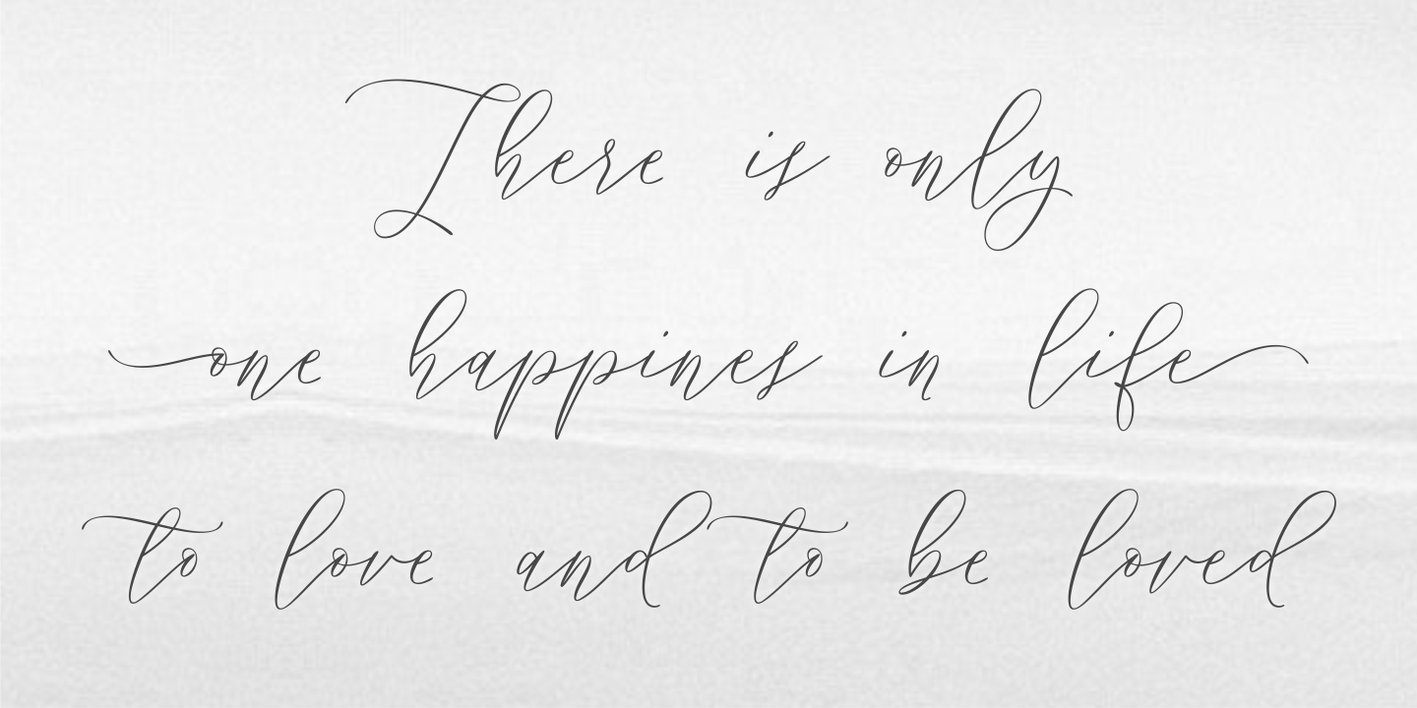 There is only
one happines in life
to love and to be loved